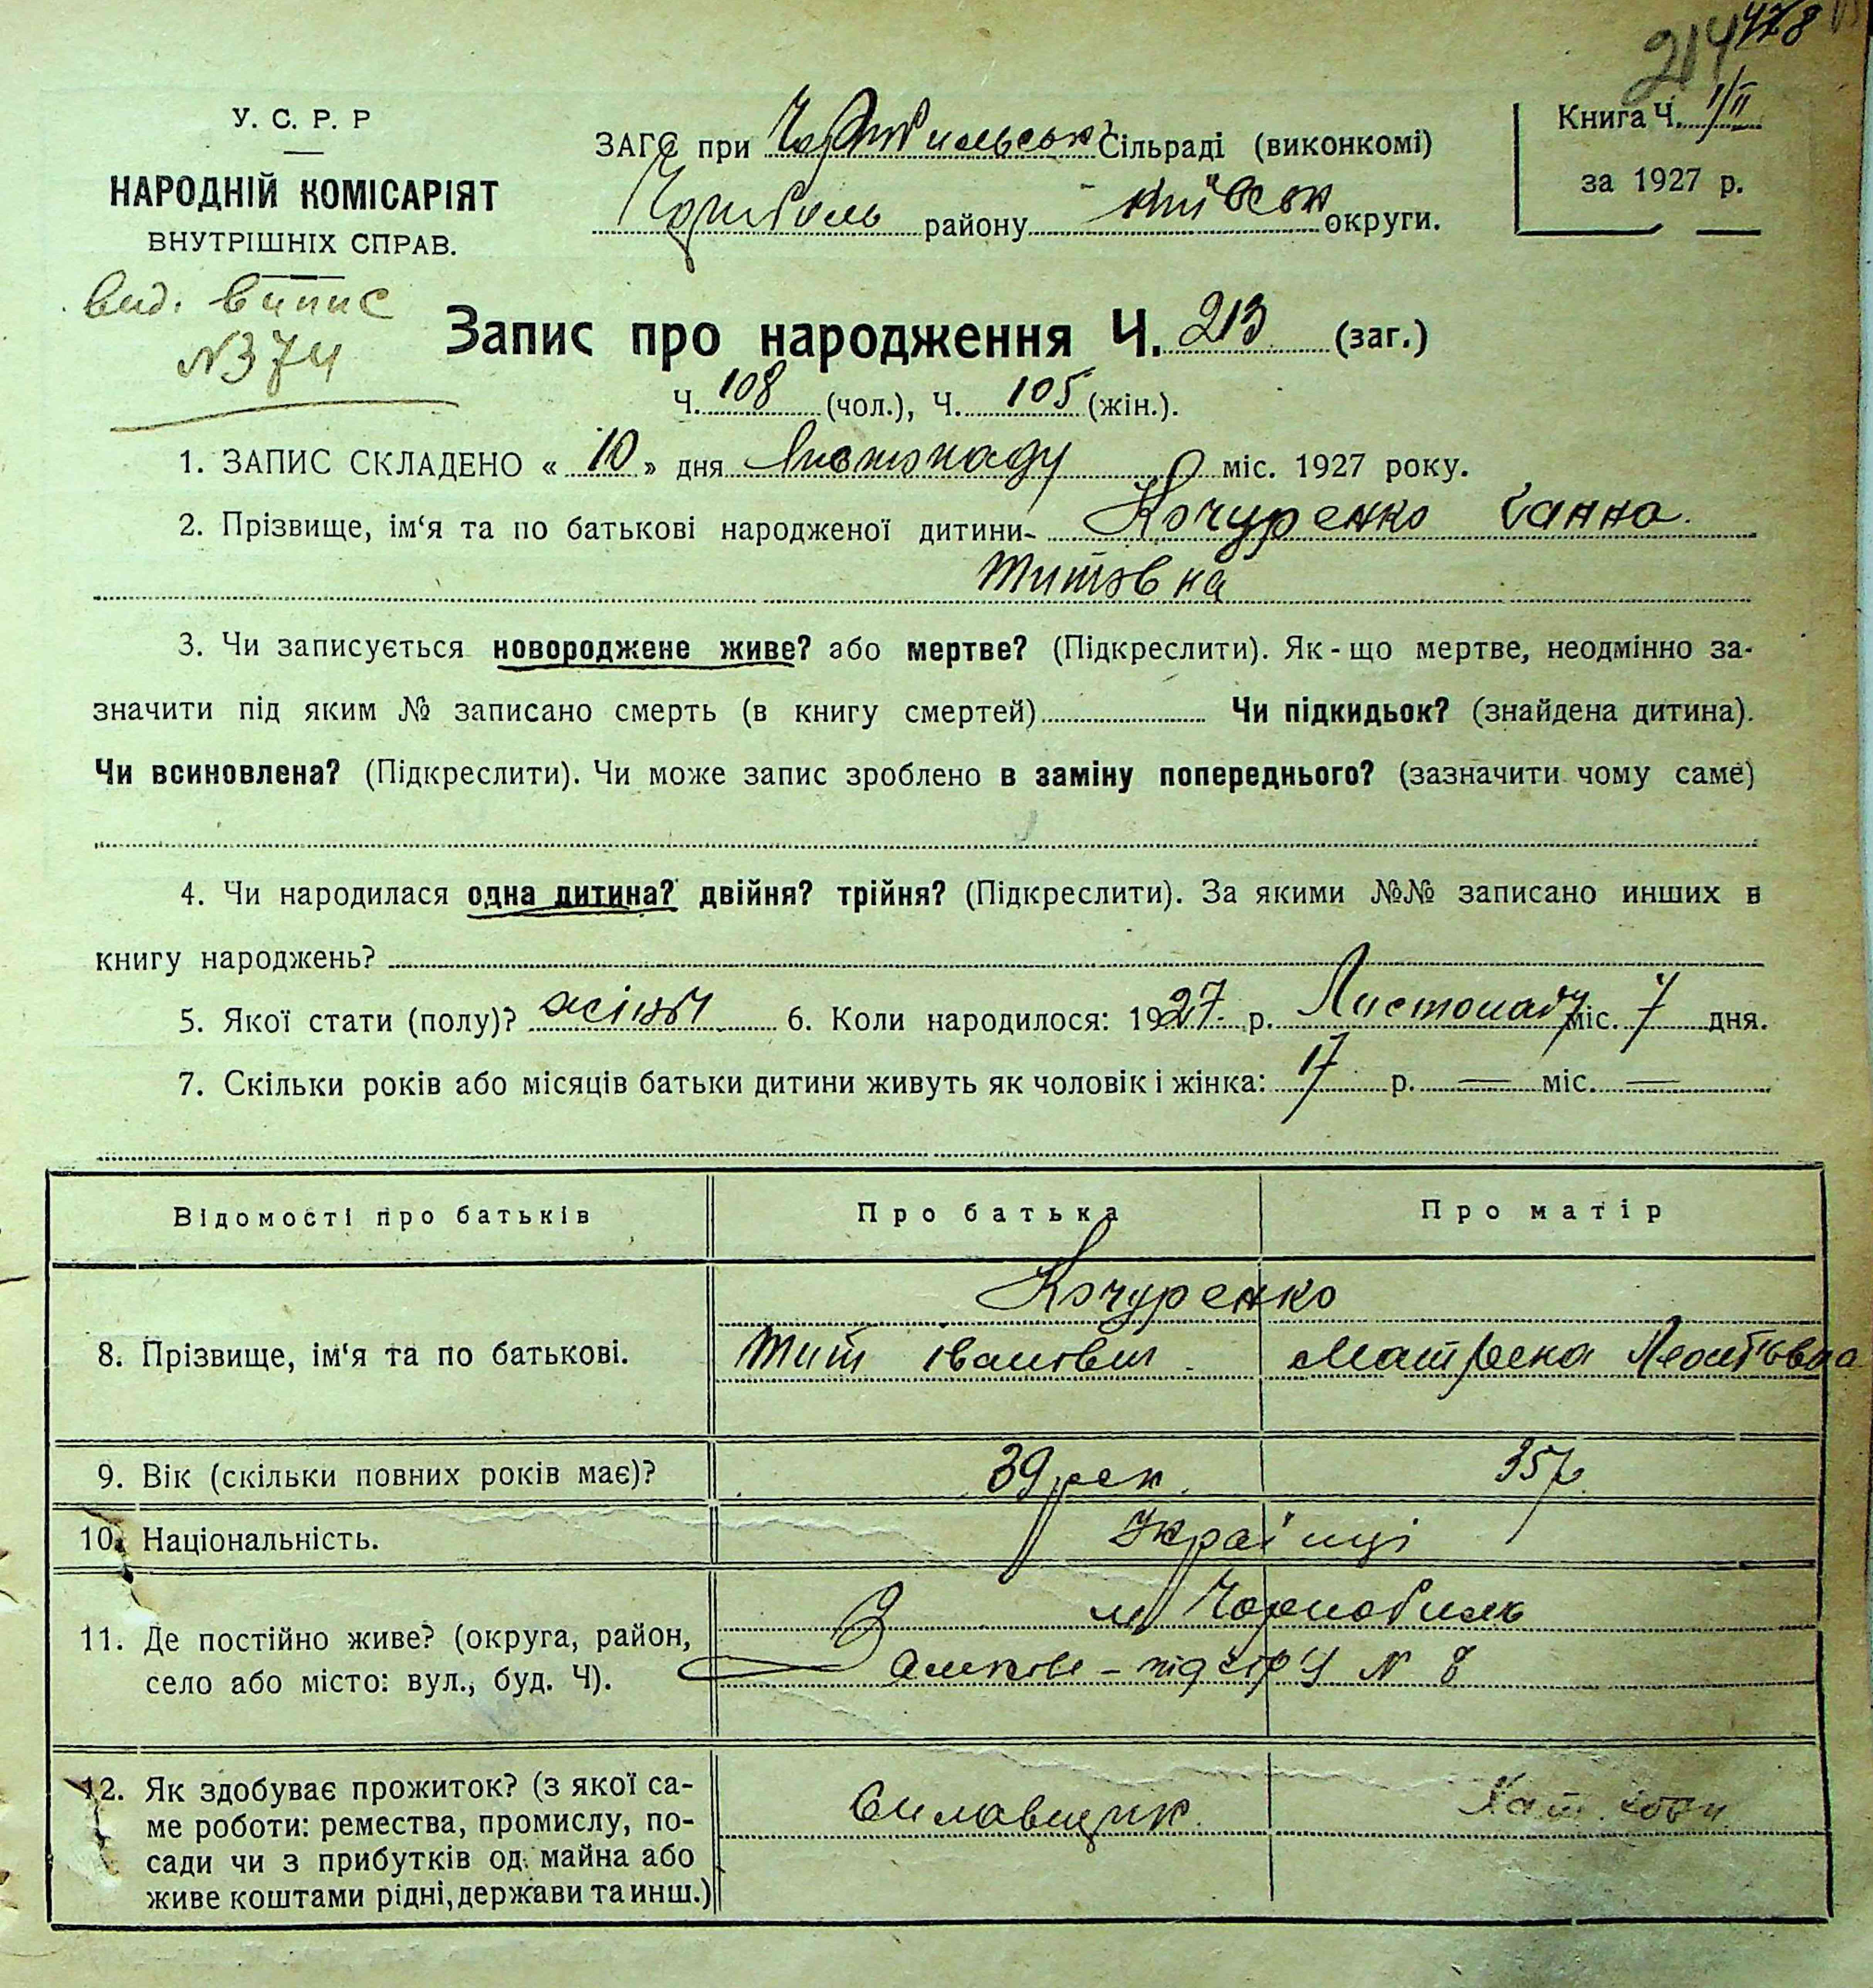 214 428
У. С. Р. Р
НАРОДНІЙ КОМІСАРІЯТ
ВНУТРІШНІХ СПРАВ.
вид. випис
N374
ЗАГС при Чорнбильськ Сільраді (виконкомі)
Чорнболь району Київськ округи.
Книга Ч. I/II
за 1927 р.
Запис про народження Ч. 213 (заг.)
Ч. 108 (чол.), Ч. 105 (жін.).
1. ЗАПИС СКЛАДЕНО « 10 » дня Листопаду міс. 1927 року.
2. Прізвище, ім‘я та по батькові народженої дитини- Кочуренко Ганна
Титовна
3. Чи записується новороджене живе? або мертве? (Підкреслити). Як-що мертве, неодмінно за-
значити під яким № записано смерть (в книгу смертей) Чи підкидьок? (знайдена дитина).
Чи всиновлена? (Підкреслити). Чи може запис зроблено в заміну попереднього? (зазначити чому саме)
4. Чи народилася одна дитина? двійня? трійня? (Підкреслити). За якими №№ записано инших в
книгу народжень?
5. Якої стати (полу)? 6. Коли народилося: 1927 р. Листопаду міс. 7 дня.
7. Скільки років або місяців батьки дитини живуть як чоловік і жінка: 17 р. — міс. —
Відомості про батьків Про батька Про матір
Кочуренко
8. Прізвище, ім‘я та по батькові. Тит Іванович Матрена Леонтьовна
9. Вік (скільки повних років має)? 39 рок. 35 р.
10. Національність. Українці
м Чорнобиль
11. Де постійно живе? (округа, район,
село або місто: вул., буд. Ч). Замкове - підгірʼя N 8
12. Як здобуває прожиток? (з якої са-
ме роботи: ремества, промислу, по-
сади чи з прибутків од майна або
живе коштами рідні, держави та инш.)
Сплавщик Хат.